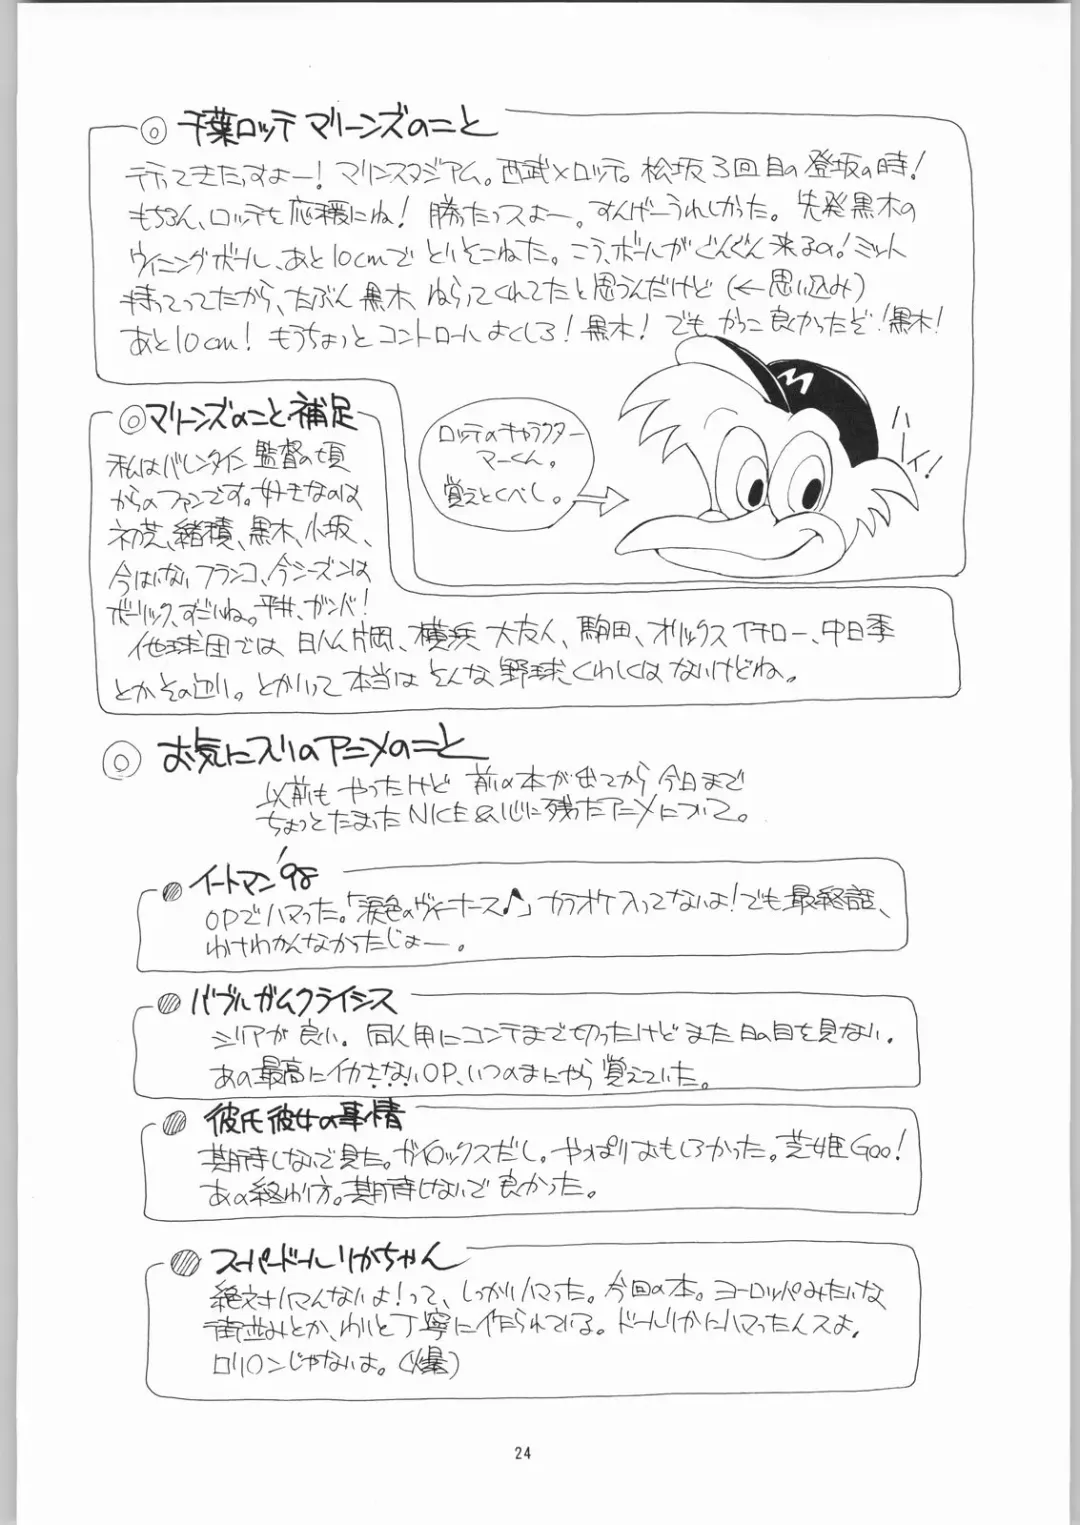 ◎ 千葉ロッテ マリーンズのこと
行ってきたっすよー！マリンスタジアム。西武×ロッテ。松坂3回目の登坂の時！
もちろん、ロッテを応援にね！ 勝たっスよー。すんげーうれしかった。先発黒木の
ウイニングボール、あと10cmで とりそこねた。こう、ボールがぐんぐん来るの！ミット
持ってってたから、たぶん 黒木 ねらってくれてたと思うんだけど（←思い込み）
あと10cm！ もうちょっとコントロールよくしろ！黒木！ でも かっこ良かったぞ！黒木！
◎マリーンズのこと補足
私はバレンタイン監督の頃
からのファンです。好きなのは
初芝、緒積、黒木、小坂、
今はいないフランコ、今シーズンは
ボーリック、すごいね。平井、ガンバ！
他球団では 日ハム片岡、横浜 大友人、駒田、オリックスイチロー、中日季
とかその辺り。とかいって本当は そんな野球くわしくはないけどね。
ロッテのキャラクター
マーくん。
覚えとくべし。
ハーイ！
M
◎ お気に入りのアニメのこと
以前も やったけど 前の本が出てから今日まで
ちょっとたまったNICE＆心に残ったアニメについて。
イートマン'98
OPでハマった。「涙色のヴィーナス♪」カラオケ入ってないよ！でも最終話、
わけわかんなかったじょー。
バブルガムクライシス
シリアが良い。同人用にコンテまで切ったけど また日の目を見ない。
あの最高にイカさないOP、いつのまにやら覚えていた。
彼氏彼女の事情
期待しないで見た。ガイナックスだし。やっぱりおもしろかった。芝姫Goo！
あの終わり方。期待しないで良かった。
スーパードールリカちゃん
絶対ハマんないよ！って、しっかりハマった。今回の本。ヨーロッパみたいな
街並みとか、わりと丁寧に作られている。ドールリカにハマったんスよ。
ロリ○ンじゃないよ。（爆）
24